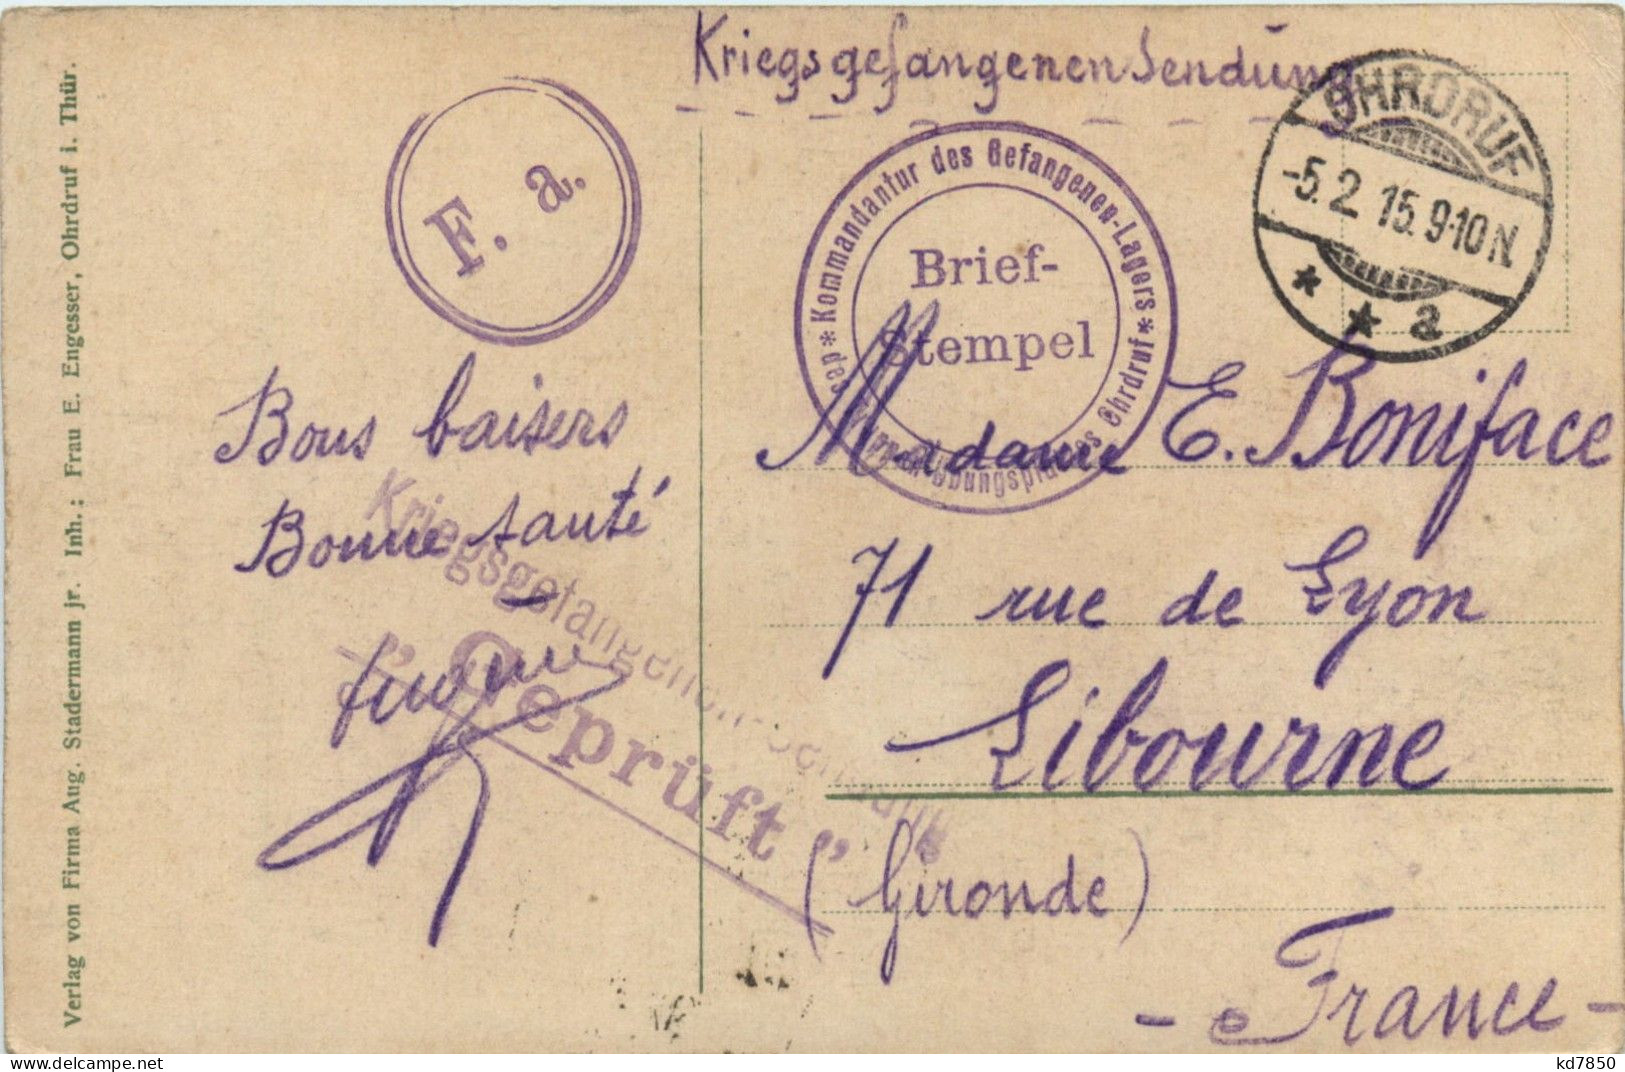 Kriegsgefangenen Sendung
OHRDRUF
-5.2.15.9-10N.
* * a
F. a.
* Kommandantur des Gefangenen-Lagers *
des Truppenübungsplatzes Ohrdruf
Brief-
Stempel
Bons baisers
Bonne santé
Kriegsgefangenen-Sendung
„Geprüft”
Madame E. Boniface
71 rue de Lyon
Libourne
(Gironde)
- France -
Verlag von Firma Aug. Stadermann jr. Inh.: Frau E. Engesser, Ohrdruf i. Thür.
www.delcampe.net
kd7850